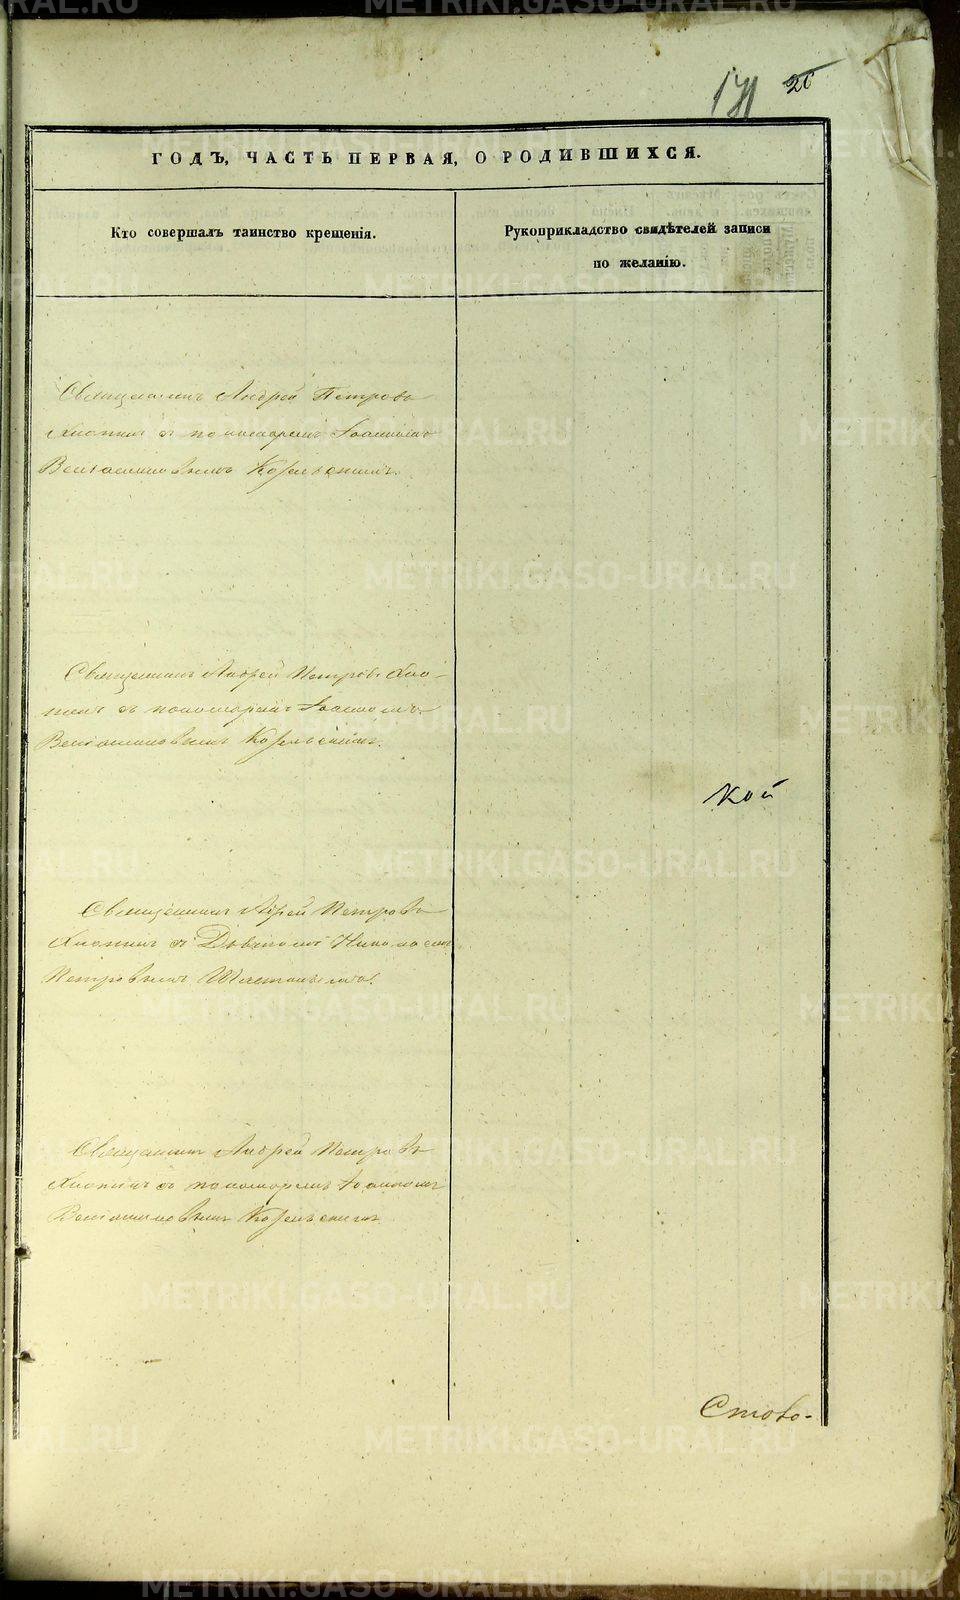 171 26
ГОДЪ, ЧАСТЬ ПЕРВАЯ, О РОДИВШИХСЯ.
Кто совершалъ таинство крещенія.
Рукоприкладство свидѣтелей записи
по желанію.
Священникъ Андрей Петровъ
Хлопинъ съ пономаремъ Іоанномъ
Веніаминовымъ
Священникъ Андрей Петровъ Хло-
пинъ съ пономаремъ Іоанномъ
Веніаминовымъ
кой
Священникъ Андрей Петровъ
Хлопинъ съ Дьячкомъ Николаемъ
Петровымъ
Священникъ Андрей Петровъ
Хлопинъ съ пономаремъ Іоанномъ
Веніаминовымъ
Стово-
METRIKI.GASO-URAL.RU